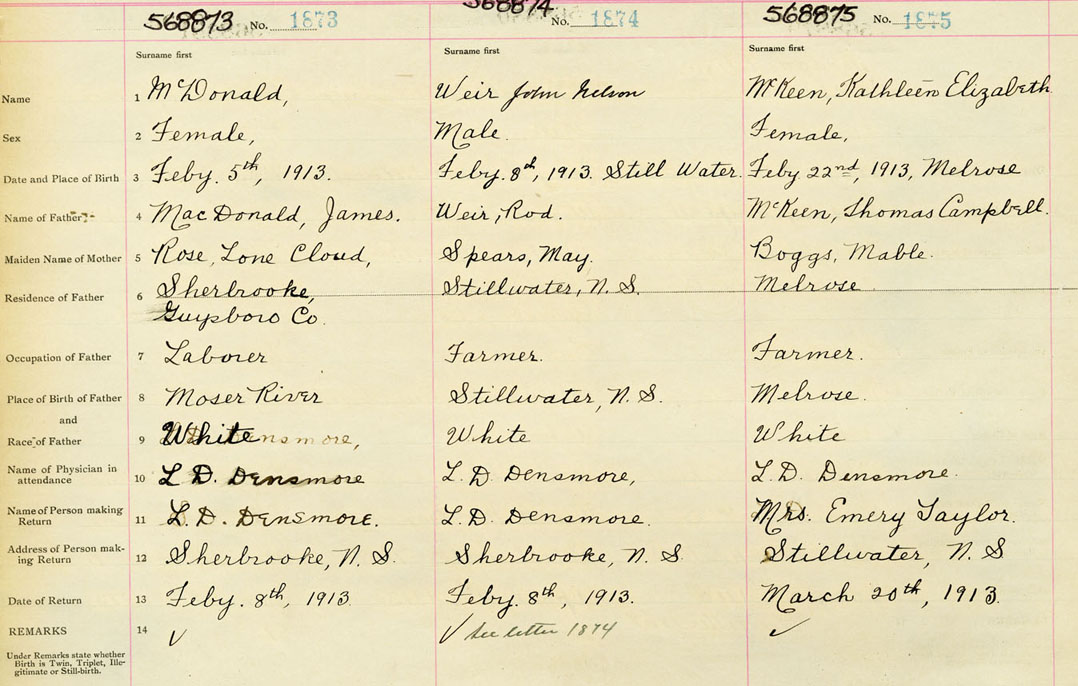 568873 No. 1873 568874 No. 1874 568875 No. 1875
Surname first Surname first Surname first
Name 1 McDonald, Weir John Nelson McKeen, Kathleen Elizabeth
Sex 2 Female, Male. Female,
Date and Place of Birth 3 Feby. 5th, 1913. Feby. 8th, 1913. Still Water. Feby 22nd, 1913, Melrose
Name of Father 4 MacDonald, James. Weir, Rod. McKeen, Thomas Campbell.
Maiden Name of Mother 5 Rose, Lone Cloud, Spears, May. Boggs, Mable.
Residence of Father 6 Sherbrooke, Stillwater, N.S. Melrose
Guysboro Co.
Occupation of Father 7 Laborer Farmer. Farmer.
Place of Birth of Father 8 Moser River Stillwater, N.S. Melrose.
and
Race of Father 9 White White White
Name of Physician in
attendance 10 L. D. Densmore L. D. Densmore, L. D. Densmore.
Name of Person making
Return 11 L. D. Densmore. L. D. Densmore. Mrs. Emery Taylor.
Address of Person mak-
ing Return 12 Sherbrooke, N. S. Sherbrooke, N. S. Stillwater, N. S
Date of Return 13 Feby. 8th, 1913. Feby. 8th, 1913. March 20th, 1913.
REMARKS 14 ✓ ✓ See letter 1874 ✓
Under Remarks state whether
Birth is Twin, Triplet, Ille-
gitimate or Still-birth.